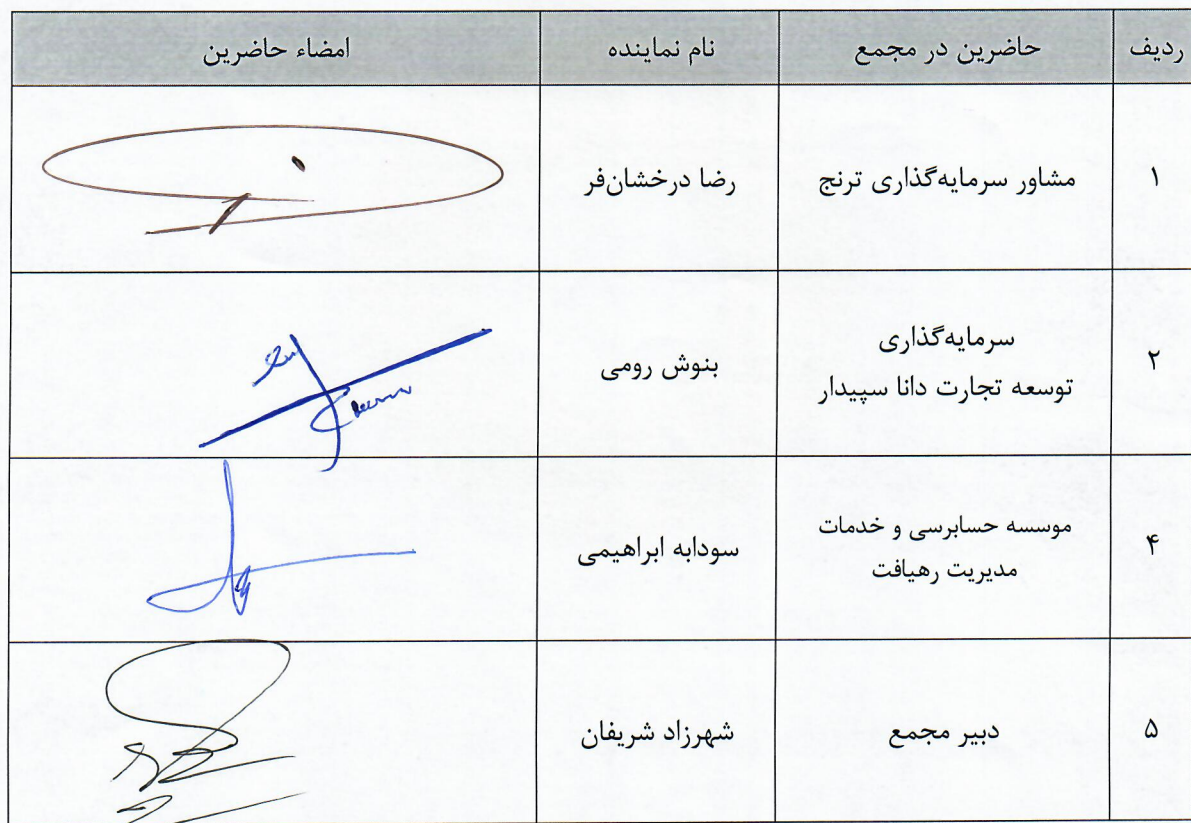 ردیف حاضرین در مجمع نام نماینده امضاء حاضرین
۱ مشاور سرمایه‌گذاری ترنج رضا درخشان‌فر
۲ سرمایه‌گذاری
توسعه تجارت دانا سپیدار بنوش رومی
۴ موسسه حسابرسی و خدمات
مدیریت رهیافت سودابه ابراهیمی
۵ دبیر مجمع شهرزاد شریفان